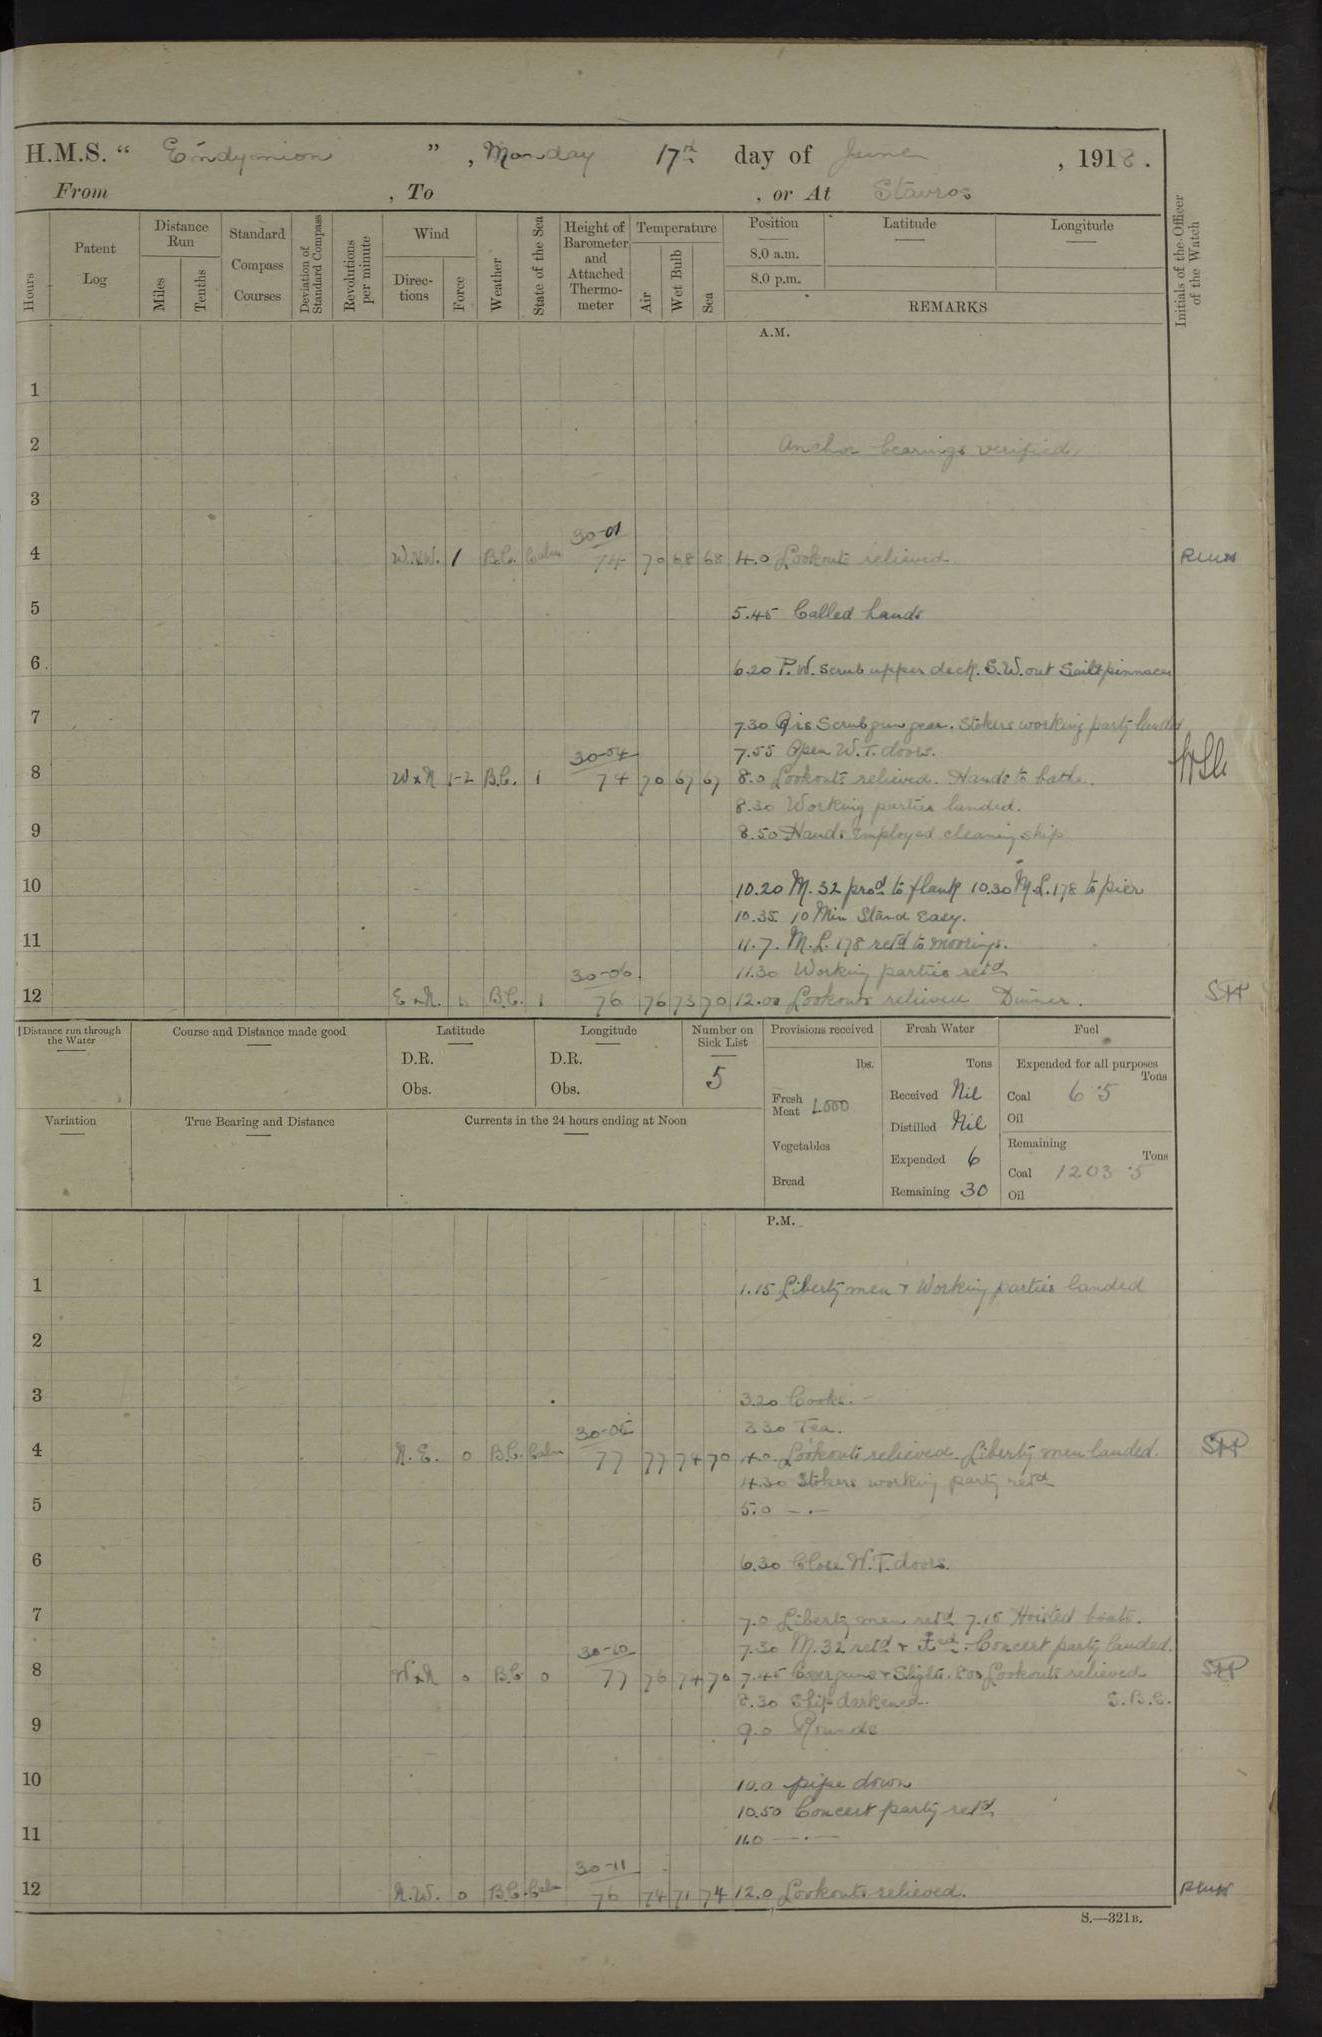 H.M.S. “ Endymion ”, Monday 17th day of June, 1918.
From , To , or At Stavros
Hours
Patent Log
Distance Run
Miles
Tenths
Standard Compass Courses
Deviation of Standard Compass
Revolutions per minute
Wind
Directions
Force
Weather
State of the Sea
Height of Barometer and Attached Thermometer
Temperature
Air
Wet Bulb
Sea
Position
8.0 a.m.
8.0 p.m.
Latitude
Longitude
REMARKS
Initials of the Officer of the Watch
A.M.
1
2 Anchor bearings verified
3
30-01
4 1 B.C. Calm 74 70 68 68 4.0 Lookouts relieved
5 5.45 Called hands
6 6.20 P.W. Scrub upper deck. S.W. out Sail pinnaces
7 7.30 Scrub gun gear. Stokers working party landed
30-04 7.55 Open W.T. doors.
8 WxN 1-2 B.C. 1 74 70 67 67 8.0 Lookouts relieved. Hands to bathe.
8.30 Working parties landed.
9 8.50 Hands Employed cleaning ship
10 10.20 M. 32 pro'd to flank 10.30 M.L. 178 to pier
10.35. 10 Min Stand Easy.
11 11.7. M.L. 178 ret'd to moorings.
30-06 11.30 Working parties ret'd
12 ExN. B.C. 1 76 76 73 70 12.00 Lookouts relieved Dinner.
Distance run through the Water
Course and Distance made good
Latitude
D.R.
Obs.
Longitude
D.R.
Obs.
Number on Sick List
5
Provisions received
lbs.
Fresh Meat
Vegetables
Bread
Fresh Water
Tons
Received Nil
Distilled Nil
Expended 6
Remaining 30
Fuel
Expended for all purposes
Tons
Coal 6.5
Oil
Remaining
Tons
Coal 1203.5
Oil
Variation
True Bearing and Distance
Currents in the 24 hours ending at Noon
P.M.
1 1.15 Liberty men + Working parties landed
2
3 3.20 Cooks. -
30-05 3.30 Tea.
4 N.E. 0 B.C. Calm 77 77 74 70 4.0 Lookouts relieved. Liberty men landed.
4.30 Stokers working party ret'd
5 5.0 - . -
6 6.30 Close W.T. doors.
7 7.0 Liberty men ret'd 7.15 Hoisted boats.
30-10 7.30 M. 32 ret'd + Concert party landed.
8 WxN 0 B.C 0 77 76 74 70 7.45 Cover guns + S'lights. 8.00 Lookouts relieved
8.30 Ship darkened.
9 9.0 Rounds
10 10.0 pipe down
10.50 Concert party ret'd
11 11.0 - . -
30-11
12 N.W. 0 B.C. Calm 76 74 71 74 12.0 Lookouts relieved.
S.—321B.